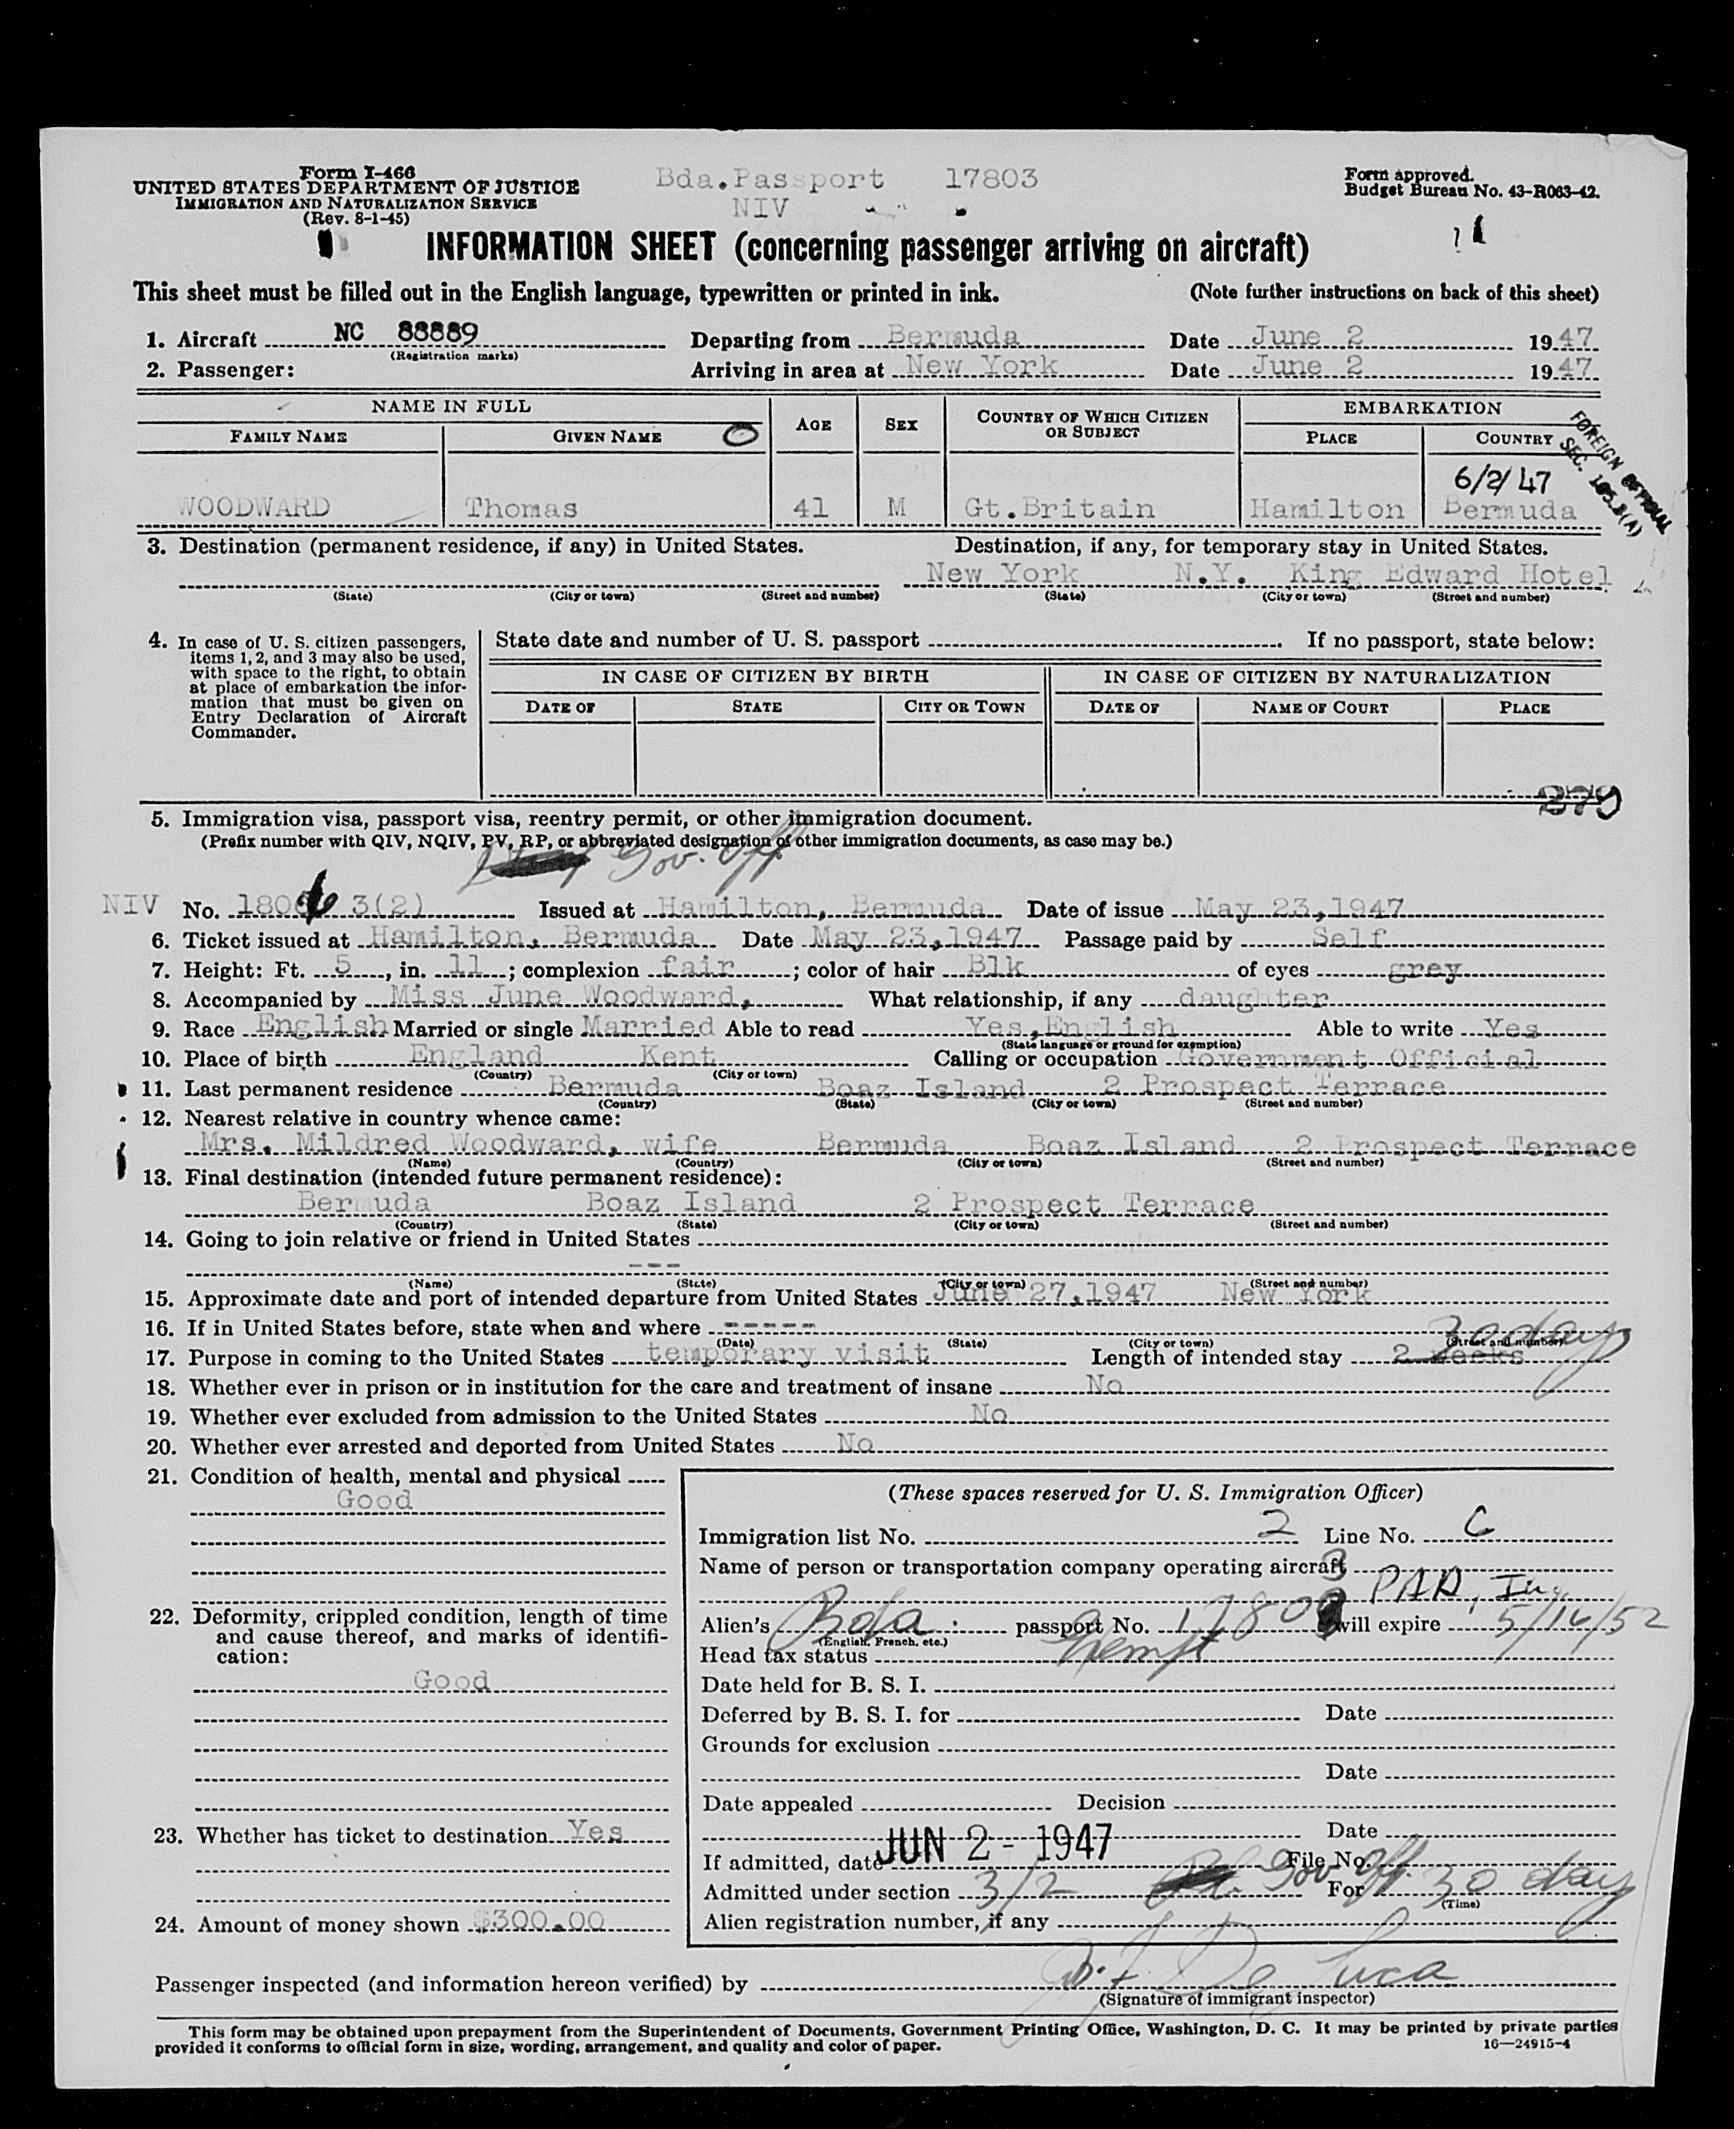 Form I-466
UNITED STATES DEPARTMENT OF JUSTICE
IMMIGRATION AND NATURALIZATION SERVICE
(Rev. 8-1-45)
Bda.Passport 17803
NIV
Form approved.
Budget Bureau No. 43-R063-42.
INFORMATION SHEET (concerning passenger arriving on aircraft)
This sheet must be filled out in the English language, typewritten or printed in ink. (Note further instructions on back of this sheet)
1. Aircraft NC 88889 Departing from Bermuda Date June 2 1947
(Registration marks)
2. Passenger: Arriving in area at New York Date June 2 1947
NAME IN FULL AGE SEX COUNTRY OF WHICH CITIZEN OR SUBJECT EMBARKATION
FAMILY NAME GIVEN NAME PLACE COUNTRY
FOREIGN OFFICIAL
SEC. 105.3(A)
6/2/47
WOODWARD Thomas 41 M Gt.Britain Hamilton Bermuda
3. Destination (permanent residence, if any) in United States. Destination, if any, for temporary stay in United States.
New York N.Y. King Edward Hotel
(State) (City or town) (Street and number) (State) (City or town) (Street and number)
4. In case of U. S. citizen passengers, items 1, 2, and 3 may also be used, with space to the right, to obtain at place of embarkation the information that must be given on Entry Declaration of Aircraft Commander.
State date and number of U. S. passport . If no passport, state below:
IN CASE OF CITIZEN BY BIRTH IN CASE OF CITIZEN BY NATURALIZATION
DATE OF STATE CITY OR TOWN DATE OF NAME OF COURT PLACE
279
5. Immigration visa, passport visa, reentry permit, or other immigration document.
(Prefix number with QIV, NQIV, PV, RP, or abbreviated designation of other immigration documents, as case may be.)
Gov. Off
NIV No. 180 3(2) Issued at Hamilton, Bermuda Date of issue May 23,1947
6. Ticket issued at Hamilton, Bermuda Date May 23,1947 Passage paid by Self
7. Height: Ft. 5, in. 11; complexion fair; color of hair Blk of eyes grey
8. Accompanied by Miss June Woodward, What relationship, if any daughter
9. Race English Married or single Married Able to read Yes,English Able to write Yes
(State language or ground for exemption)
10. Place of birth England Kent Calling or occupation Government Official
(Country) (City or town)
11. Last permanent residence Bermuda Boaz Island 2 Prospect Terrace
(Country) (State) (City or town) (Street and number)
12. Nearest relative in country whence came:
Mrs. Mildred Woodward, wife Bermuda Boaz Island 2 Prospect Terrace
(Name) (Country) (City or town) (Street and number)
13. Final destination (intended future permanent residence):
Bermuda Boaz Island 2 Prospect Terrace
(Country) (State) (City or town) (Street and number)
14. Going to join relative or friend in United States
---
(Name) (State) (City or town) (Street and number)
15. Approximate date and port of intended departure from United States June 27,1947 New York
16. If in United States before, state when and where -----
(Date) (State) (City or town) (Street and number)
30 days
17. Purpose in coming to the United States temporary visit Length of intended stay 2 weeks
18. Whether ever in prison or in institution for the care and treatment of insane No
19. Whether ever excluded from admission to the United States No
20. Whether ever arrested and deported from United States No
21. Condition of health, mental and physical
Good
22. Deformity, crippled condition, length of time and cause thereof, and marks of identification:
Good
23. Whether has ticket to destination Yes
24. Amount of money shown $300.00
(These spaces reserved for U. S. Immigration Officer)
Immigration list No. 2 Line No. 6
Name of person or transportation company operating aircraft
PAA, Inc
Alien's Bda. passport No. 17803 will expire 5/14/52
(English, French, etc.)
Head tax status Exempt
Date held for B. S. I.
Deferred by B. S. I. for Date
Grounds for exclusion
Date
Date appealed Decision
Date
If admitted, date JUN 2 - 1947 File No.
Admitted under section 3/2 Gov Off. For 30 days
(Time)
Alien registration number, if any
Passenger inspected (and information hereon verified) by De Luca
(Signature of immigrant inspector)
This form may be obtained upon prepayment from the Superintendent of Documents, Government Printing Office, Washington, D. C. It may be printed by private parties
provided it conforms to official form in size, wording, arrangement, and quality and color of paper. 16—24915-4